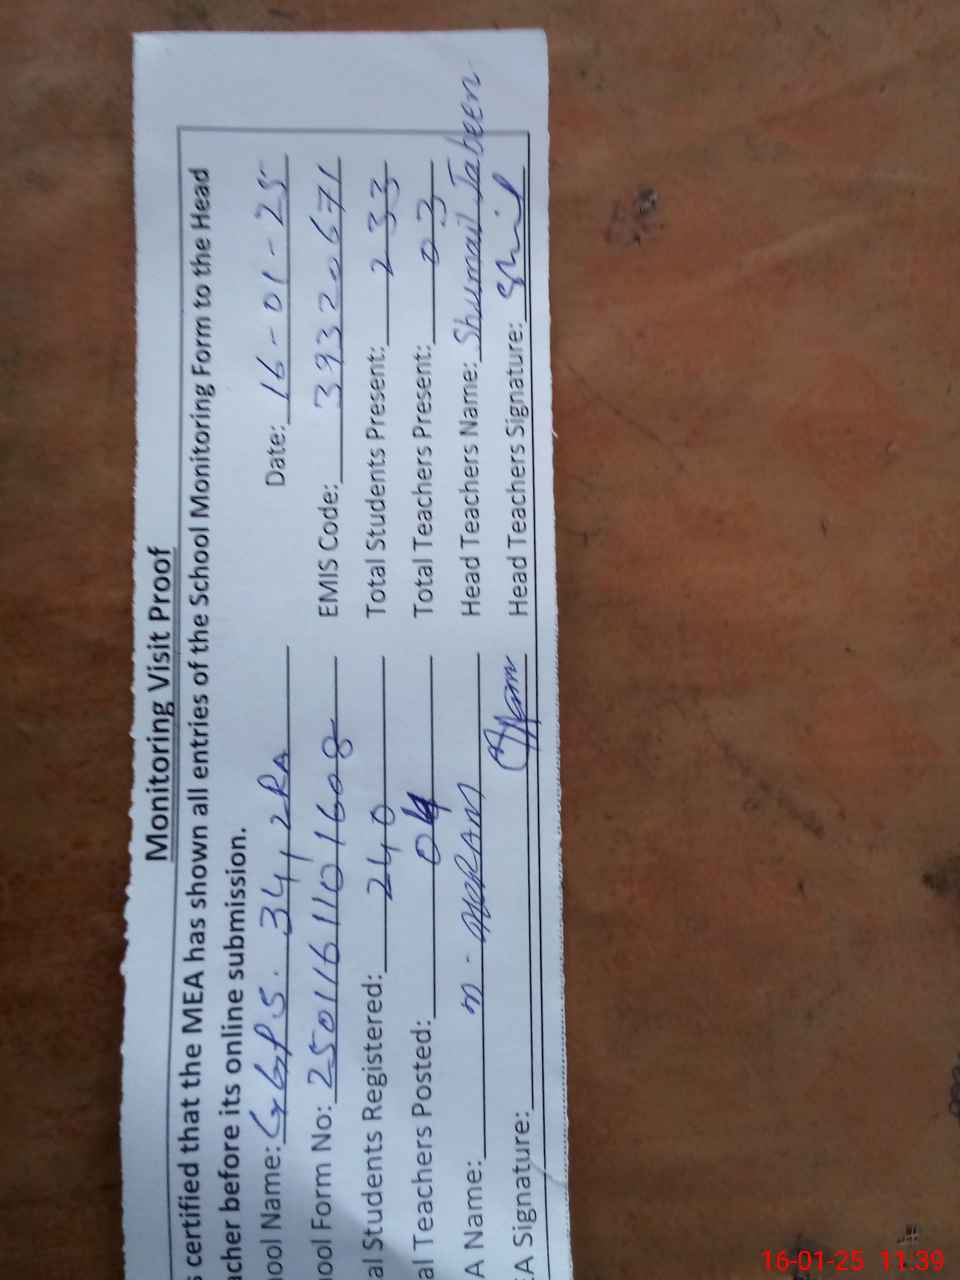 Monitoring Visit Proof
s certified that the MEA has shown all entries of the School Monitoring Form to the Head
acher before its online submission.
Date: 16-01-25
ool Name: GGPS. 34/2RA
EMIS Code: 39320671
ool Form No: 25011611101608
Total Students Present: 233
al Students Registered: 240
Total Teachers Present: 03
al Teachers Posted: 04
Head Teachers Name: Shumail Jabeen
A Name: M. AKRAM
Head Teachers Signature:
EA Signature:
16-01-25 11:39